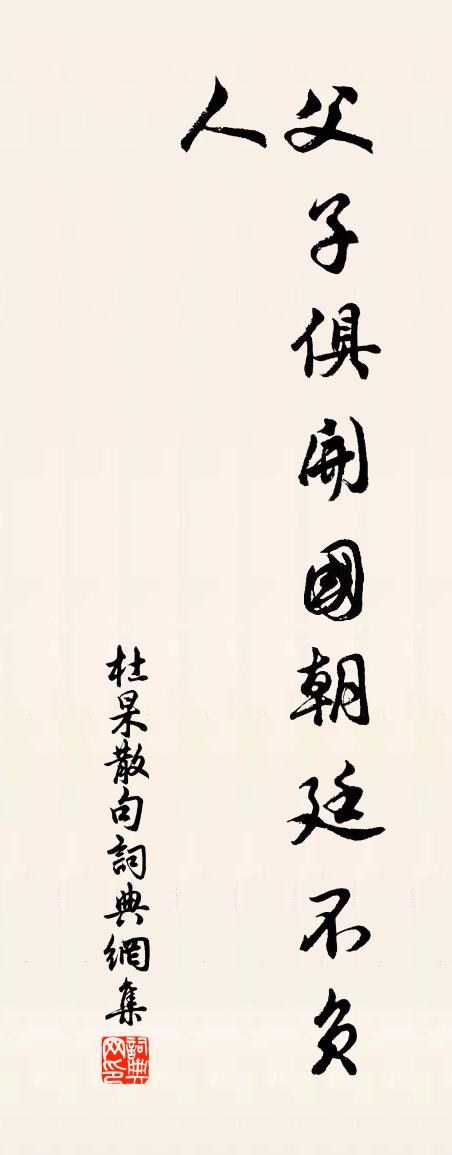 父子俱開國朝廷不負
人
杜杲散句詞典網集
詞典网印